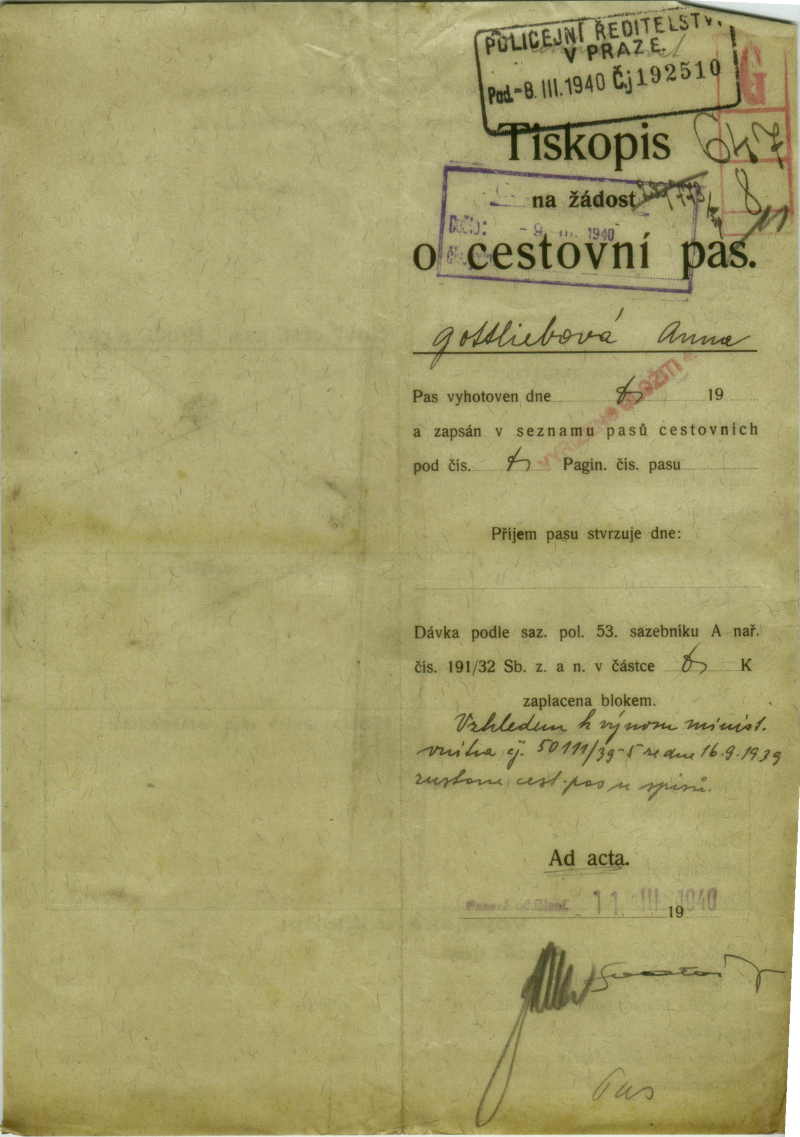 POLICEJNÍ ŘEDITELSTVÍ
V PRAZE
Pod. -8. III. 1940 Čj 192510
G
Tiskopis
na žádost
- 9. III. 1940
o cestovní pas.
Gottliebová Anna
Pas vyhotoven dne 19
a zapsán v seznamu pasů cestovních
pod čís. Pagin. čís. pasu
Příjem pasu stvrzuje dne:
Dávka podle saz. pol. 53. sazebníku A nař.
čís. 191/32 Sb. z. a n. v částce K
zaplacena blokem.
Vzhledem k výnosu minist.
vnitra čj. 50111/39-5 ze dne 16.9.1939
zůstane cest. pas u spisů.
Ad acta.
11. III. 1940
19
Pas